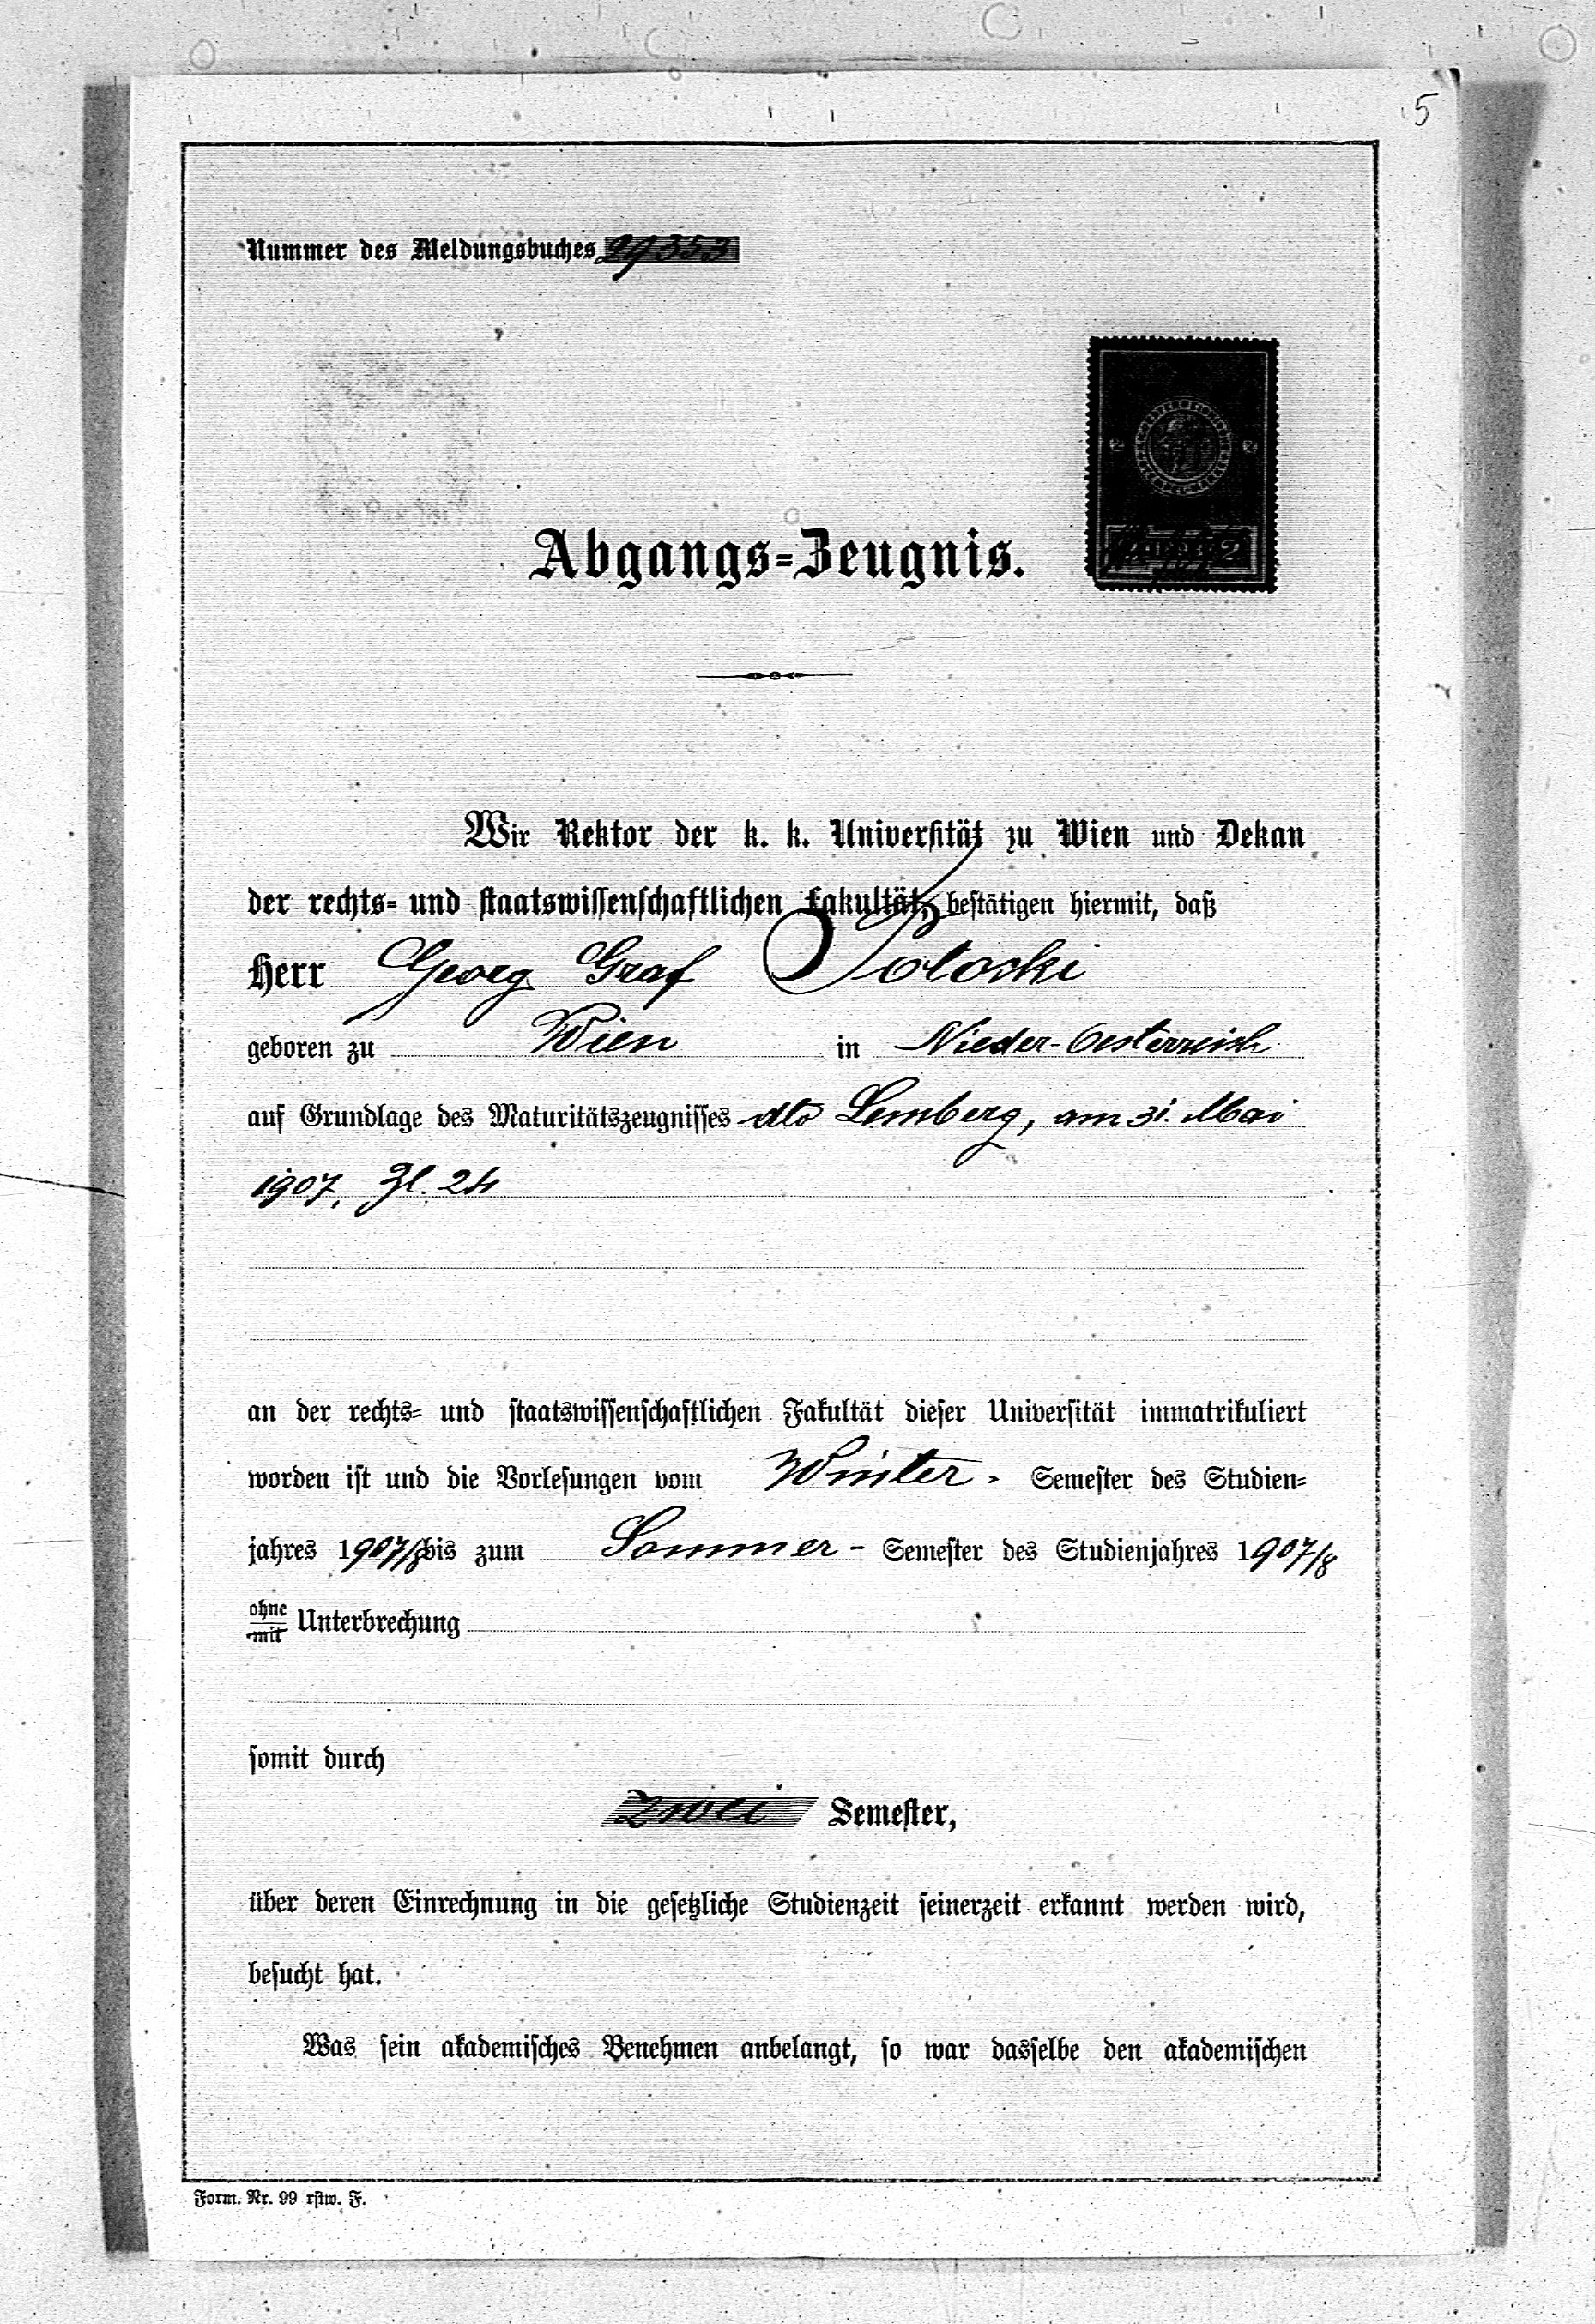 5
Nummer des Meldungsbuches 29353
Abgangs-Zeugnis.
Wir Rektor der k. k. Universität zu Wien und Dekan
der rechts- und staatswissenschaftlichen Fakultät, bestätigen hiermit, daß
Herr Georg Graf Potocki
geboren zu Wien in Nieder-Oesterreich
auf Grundlage des Maturitätszeugnisses dto Lemberg, am 31. Mai
1907, Zl. 24
an der rechts- und staatswissenschaftlichen Fakultät dieser Universität immatrikuliert
worden ist und die Vorlesungen vom Winter- Semester des Studien-
jahres 1907/8 bis zum Sommer- Semester des Studienjahres 1907/8
ohne
mit Unterbrechung
somit durch
zwei Semester,
über deren Einrechnung in die gesetzliche Studienzeit seinerzeit erkannt werden wird,
besucht hat.
Was sein akademisches Benehmen anbelangt, so war dasselbe den akademischen
Form. Nr. 99 rstw. F.